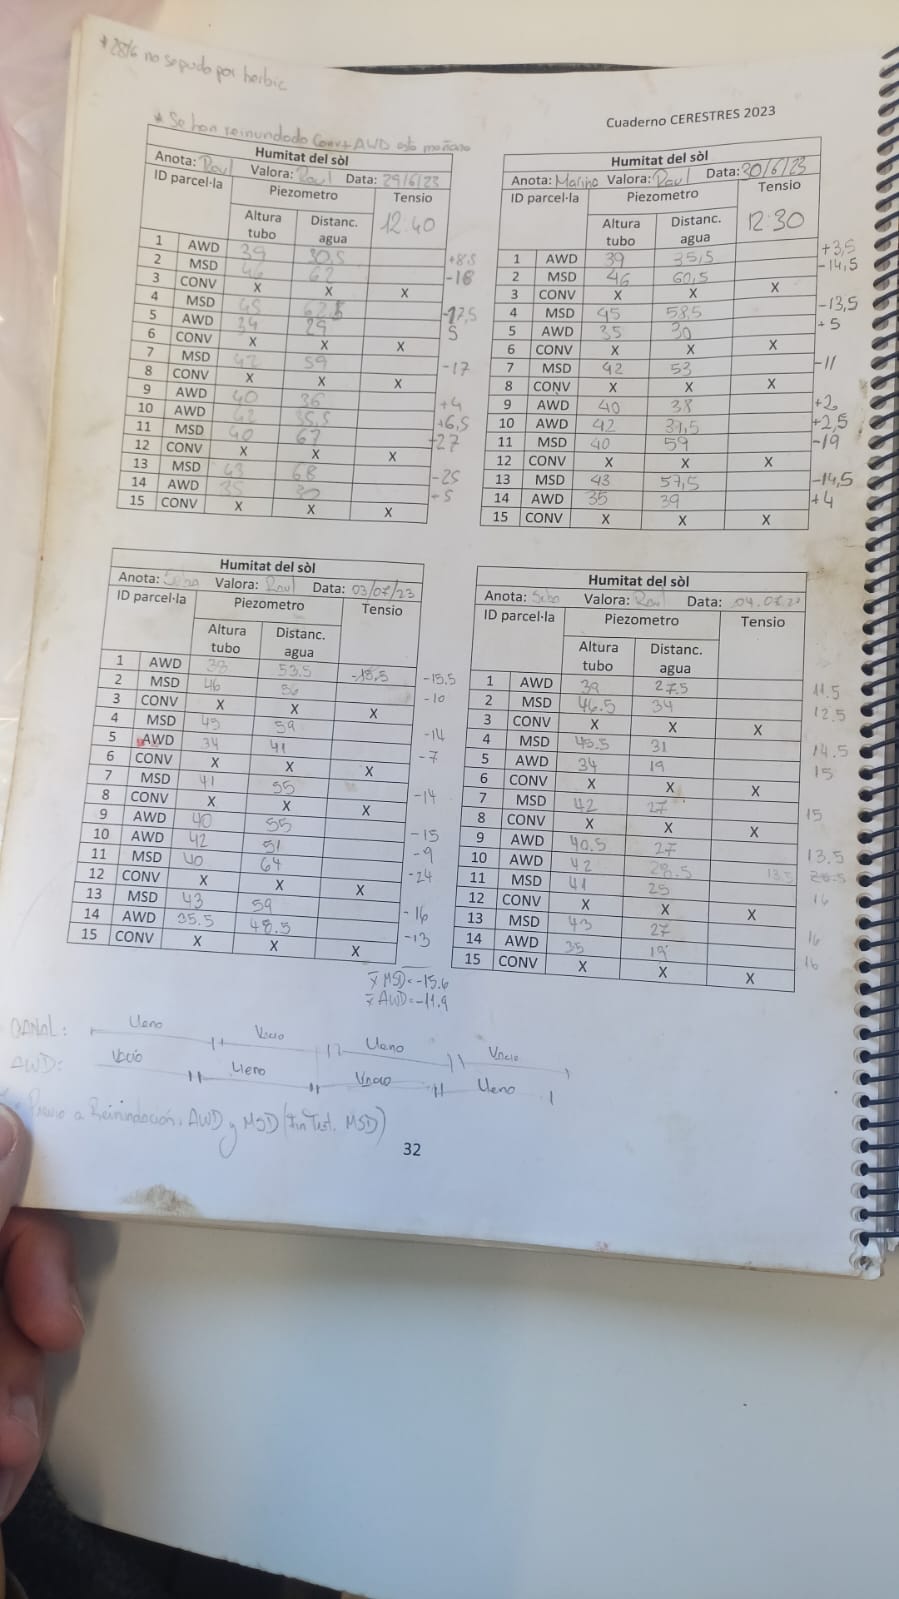 * 28/6 no se pudo por herbic
Cuaderno CERESTRES 2023
* Se han reinundado Conv+AWD esta mañana
Humitat del sòl
Anota: Raul Valora: Raul Data: 29/6/23
ID parcel·la Piezometro Tensio
Altura tubo Distanc. agua 12:40
1 AWD 39 30.5 +8.5
2 MSD 46 62 -16
3 CONV X X X
4 MSD 45 62,5 -17,5
5 AWD 34 29 5
6 CONV X X X
7 MSD 42 59 -17
8 CONV X X X
9 AWD 40 36 +4
10 AWD 42 35,5 +6,5
11 MSD 40 67 -27
12 CONV X X X
13 MSD 43 68 -25
14 AWD 35 30 +5
15 CONV X X X
Humitat del sòl
Anota: Marina Valora: Raul Data: 30/6/23
ID parcel·la Piezometro Tensio
Altura tubo Distanc. agua 12:30
1 AWD 39 35,5 +3,5
2 MSD 46 60,5 -14,5
3 CONV X X X
4 MSD 45 58,5 -13,5
5 AWD 35 30 +5
6 CONV X X X
7 MSD 42 53 -11
8 CONV X X X
9 AWD 40 38 +2
10 AWD 42 39,5 +2,5
11 MSD 40 59 -19
12 CONV X X X
13 MSD 43 57,5 -14,5
14 AWD 35 39 +4
15 CONV X X X
Humitat del sòl
Anota: Seba Valora: Raul Data: 03/07/23
ID parcel·la Piezometro Tensio
Altura tubo Distanc. agua
1 AWD 38 53.5 -15.5 -15.5
2 MSD 46 56 -10
3 CONV X X X
4 MSD 45 59 -14
5 AWD 34 41 -7
6 CONV X X X
7 MSD 41 55 -14
8 CONV X X X
9 AWD 40 55 -15
10 AWD 42 51 -9
11 MSD 40 64 -24
12 CONV X X X
13 MSD 43 59 -16
14 AWD 35.5 48.5 -13
15 CONV X X X
Humitat del sòl
Anota: Seba Valora: Raul Data: 04.07.23
ID parcel·la Piezometro Tensio
Altura tubo Distanc. agua
1 AWD 39 27.5 11.5
2 MSD 46.5 34 12.5
3 CONV X X X
4 MSD 45.5 31 14.5
5 AWD 34 19 15
6 CONV X X X
7 MSD 42 27 15
8 CONV X X X
9 AWD 40.5 27 13.5
10 AWD 42 28.5 13.5
11 MSD 41 25 16
12 CONV X X X
13 MSD 43 27 16
14 AWD 35 19 16
15 CONV X X X
x̄ MSD=-15.6
x̄ AWD=-11.9
CANAL: Lleno Vacio Lleno Vacio
AWD: Vacio Lleno Vacio Lleno
Previo a Reinundación. AWD y MSD (Fin Test. MSD)
32